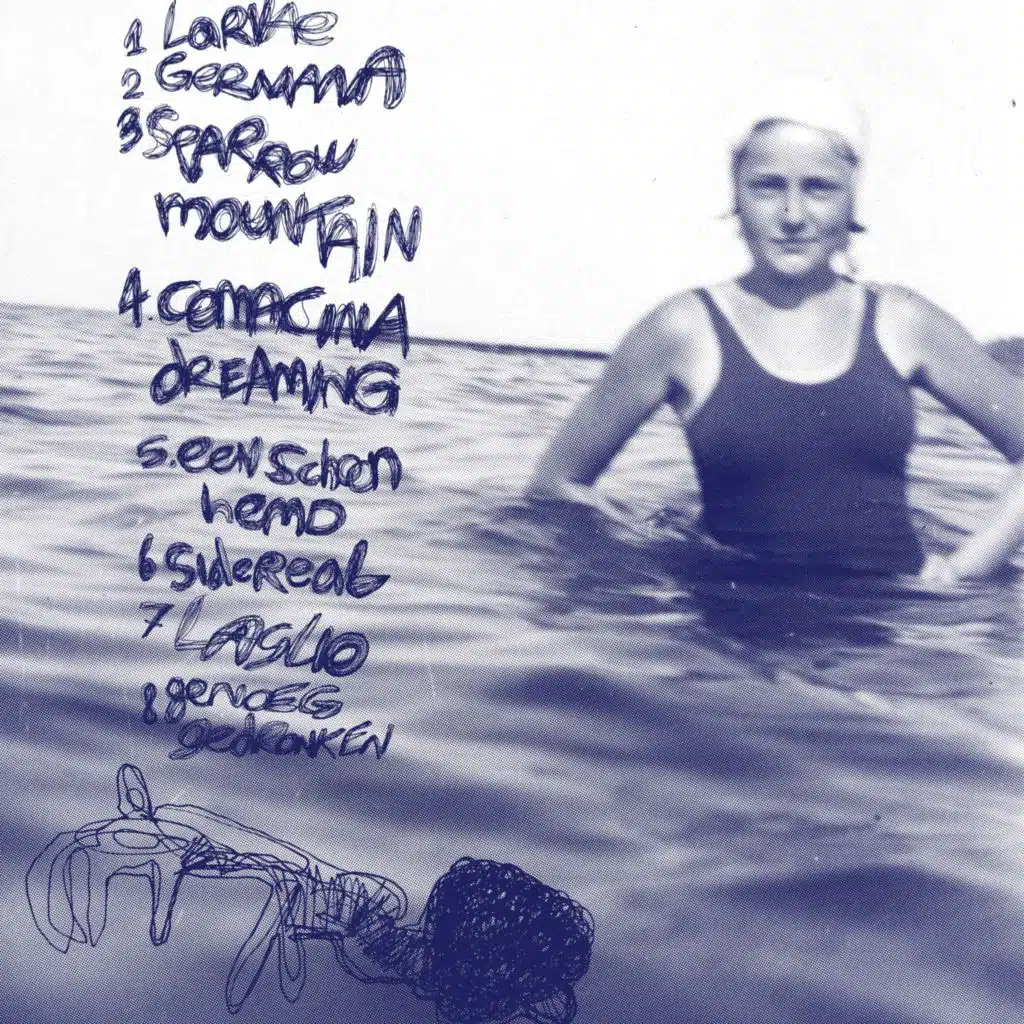 1 LARVAE
2 GERMANA
3 SPARROW
MOUNTAIN
4. COMACINA
DREAMING
5. een schoon
hemd
6 Sidereal
7 LAGLIO
8 genoeg
gedronken